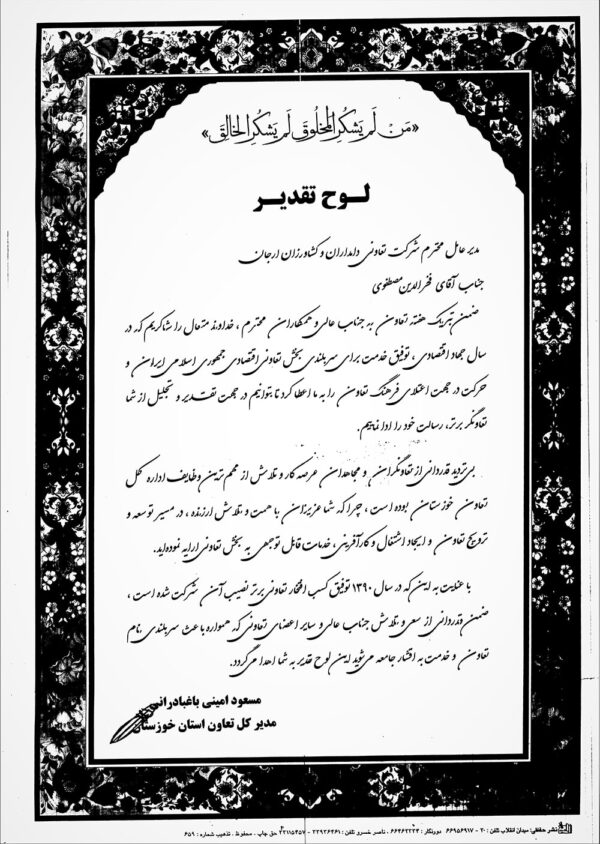 «مَنْ لَمْ يَشْكُرِ الْمَخْلُوقَ لَمْ يَشْكُرِ الْخالِقَ»
لوح تقدیر
مدیر عامل محترم شرکت تعاونی دامداران و کشاورزان ارجان
جناب آقای فخرالدین مصطفوی
ضمن تبریک هفته تعاون به جناب عالی و همکاران محترم ، خداوند متعال را شاکریم که در
سال جهاد اقتصادی ، توفیق خدمت برای سربلندی بخش تعاونی اقتصادی جمهوری اسلامی ایران و
حرکت در جهت اعتلای فرهنگ تعاون را به ما اعطا کرد تا بتوانیم در جهت تقدیر و تجلیل از شما
تعاونگر برتر، رسالت خود را ادا نماییم.
بی تردید قدردانی از تعاونگران و مجاهدان عرصه کار و تلاش از مهم ترین وظایف اداره کل
تعاون خوزستان بوده است ، چرا که شما عزیزان با همت و تلاش ارزنده ، در مسیر توسعه و
ترویج تعاون و ایجاد اشتغال و کارآفرینی ، خدمات قابل توجهی به بخش تعاونی ارایه نموده‌اید.
با عنایت به این که در سال ۱۳۹۰ توفیق کسب افتخار تعاونی برتر نصیب آن شرکت شده است ،
ضمن قدردانی از سعی و تلاش جناب عالی و سایر اعضای تعاونی که همواره باعث سربلندی نام
تعاون و خدمت به اقشار جامعه می‌شوید این لوح تقدیر به شما اهدا می‌گردد.
مسعود امینی باغبادرانی
مدیر کل تعاون استان خوزستان
نشر حافظی: میدان انقلاب تلفن : ۲۰ - ۶۶۹۵۶۹۱۷ دورنگار : ۶۶۴۶۲۲۲۳ ، ناصر خسرو تلفن : ۳۳۹۲۶۴۶۱ - ۳۳۱۱۵۴۵۷ حق چاپ ، محفوظ . تذهیب شماره : ۶۵۹